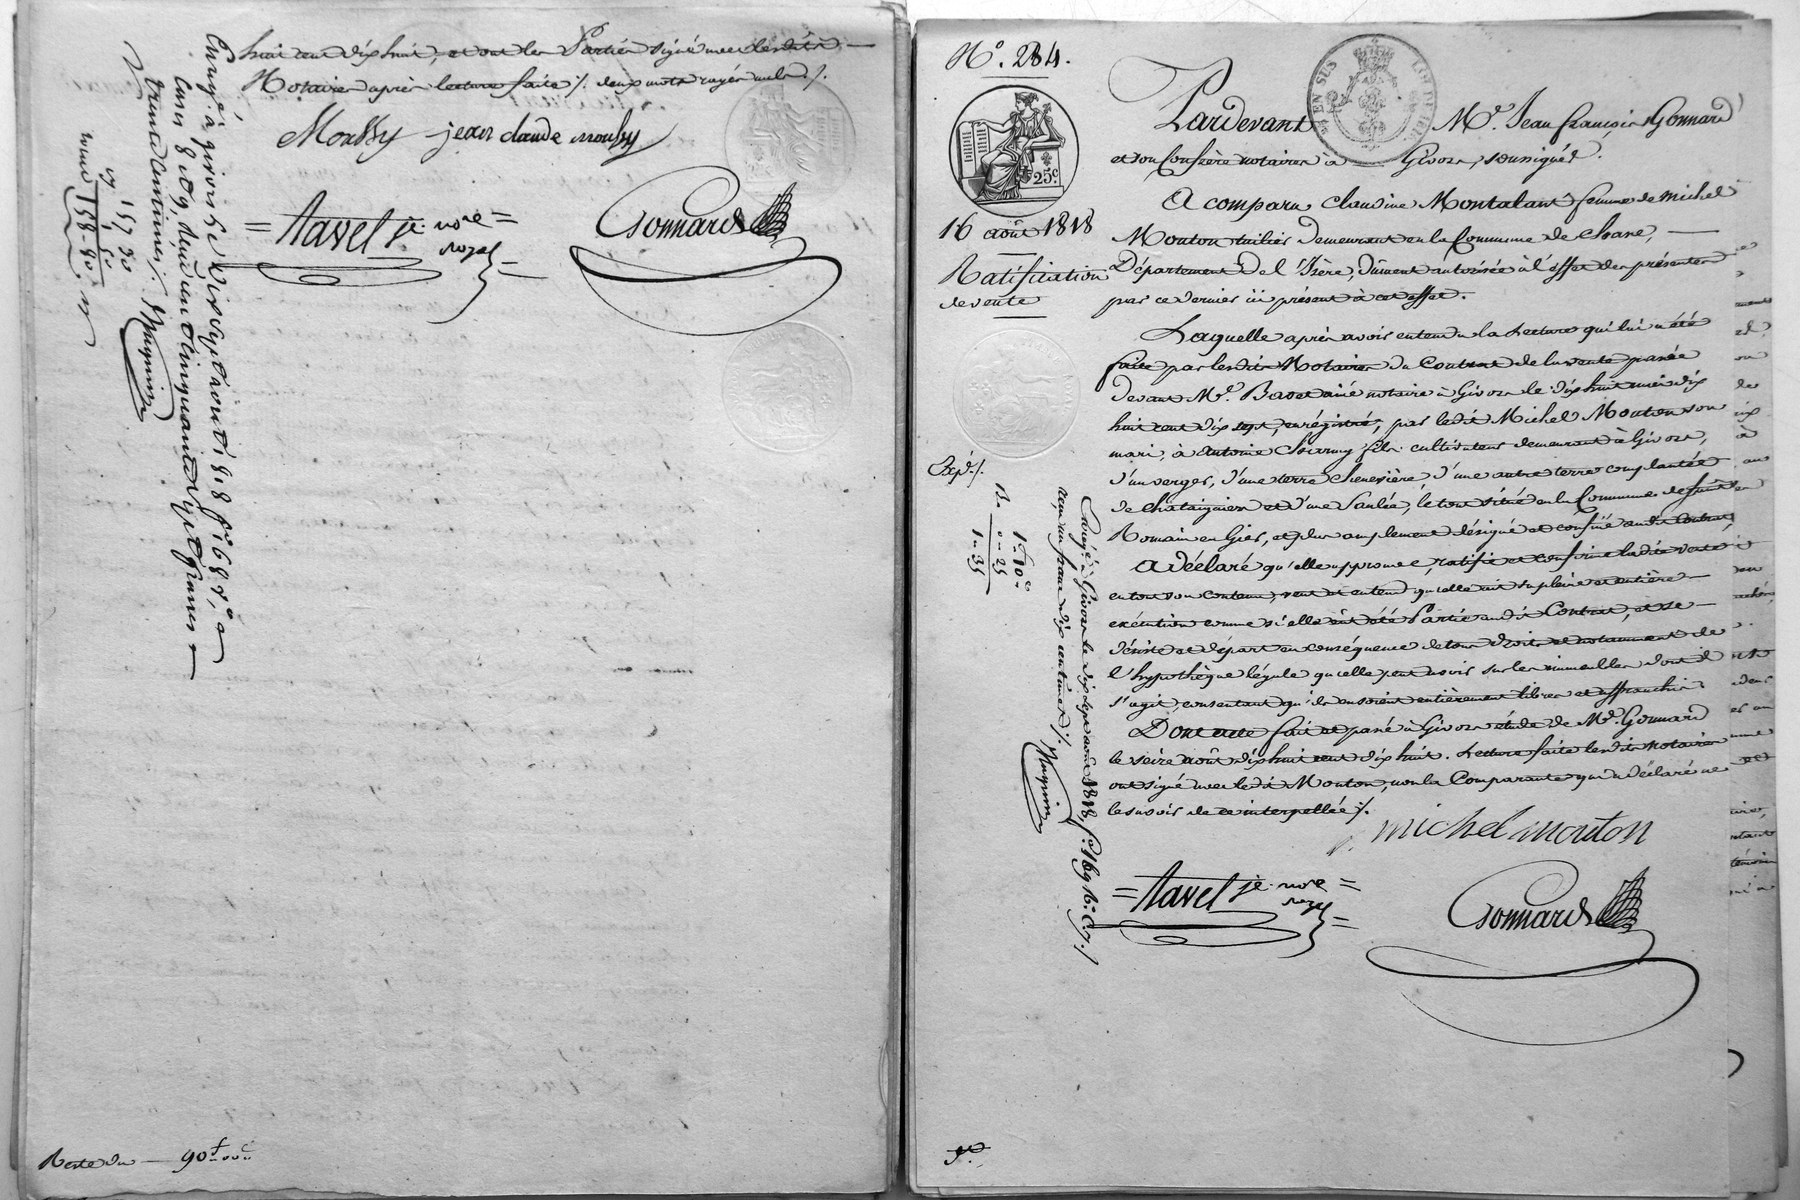 huit cent dix huit, et ont les Parties signé avec lesdits
Notaires après lecture faite ./. deux mots rayés nuls ./.
Moussy jean claude moussy
= tavel je. nore =
roye
Gonnard
Enregé. à givors le dix sept août 1818 fo. 68 vo.
Cases 8 et 9, deux cent cinquante sept francs
trente centimes ./. Mugnier
Reste du — 90f..00c
No. 284.
25c
16 août 1818
Ratification
de vente
Expé ./.
1f 10c
0 - 25
1 - 35
Pardevant Me. Jean françois Gonnard
et son Confrère notaires à Givors, soussignés.
A comparu Claudine Montalant femme de michel
Mouton tuilier demeurant en la Commune de Chane,
Département de l'Isère, Dûment autorisée à l'effet des présentes
par ce dernier ici présent à cet effet.
Laquelle après avoir entendu la Lecture qui lui a été
faite par lesdits Notaires du Contrat de la vente passée
devant Me. Bavet ainé notaire à Givors le dix huit mai dix
huit cent dix sept, enrégistré, par ledit Michel Mouton son
mari, à Antoine Charmy fils cultivateur demeurant à Givors,
d'un verger, d'une terre Chenevière, d'une autre terre complantée
de chataigniers et d'une Saulée, le tout situé en la Commune de Saint
Romain en Gier, et plus amplement désigné et confiné audit Contrat,
A déclaré qu'elle approuve, ratifie et confirme ladite vente
en tout son contenu, veut et entend qu'elle ait sa pleine et entière
exécution comme si elle eût été Partie audit Contrat, et se
désiste et départ en conséquence de tous droits et notamment de
l'hypothèque légale qu'elle peut avoir sur les immeubles dont il
s'agit, consentant qu'ils en soient entièrement libres et affranchis.
Dont acte fait et passé à Givors étude de Me. Gonnard
le seize août dix huit cent dix huit. Lecture faite lesdits notaires
ont signé avec ledit Mouton, non la Comparante qui a déclaré ne
le savoir de ce interpellée ./.
michel mouton
= tavel je. nore =
roye
Gonnard
Enregé. à Givors le dix sept août 1818, fo. 169 Ro. C. 7 ./.
reçu un franc dix centimes ./. Mugnier